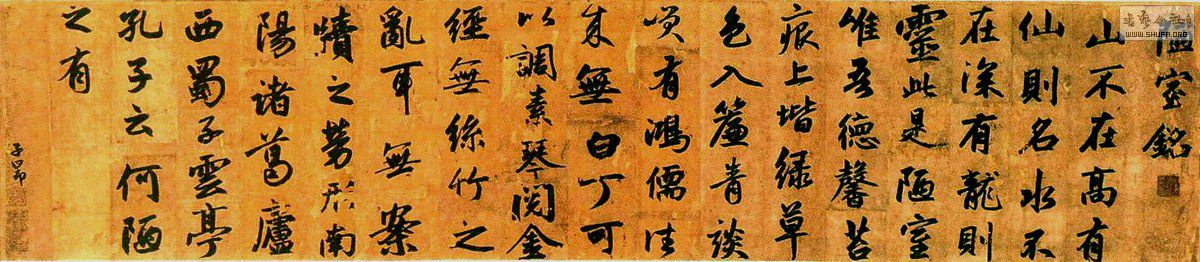 陋室銘
山不在高有
仙則名水不
在深有龍則
靈此是陋室
唯吾德馨苔
痕上堦緑草
色入簾青談
笑有鴻儒往
来無白丁可
以調素琴閱金
經無絲竹之
亂耳無案
牘之勞形南
陽諸葛廬
西蜀子雲亭
孔子云何陋
之有
子昂
书艺公社
WWW.SHUFA.ORG